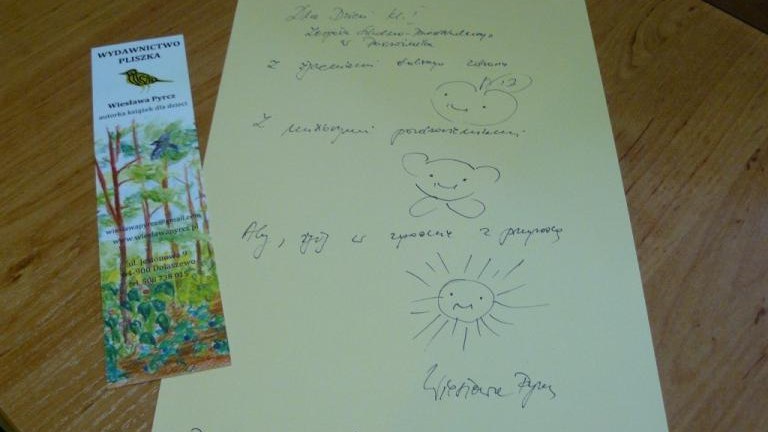 WYDAWNICTWO
PLISZKA
Wiesława Pyrcz
autorka książek dla dzieci
wieslawapyrcz@gmail.com
www.wieslawapyrcz.pl
ul. Jesionowa 9
64-900 Dolaszewo
Dla Dzieci kl. I
Zespołu
w
Z życzeniami dobrego zdrowia
Z serdecznymi pozdrowieniami
Aby, żyj w zgodzie z przyrodą
Wiesława Pyrcz